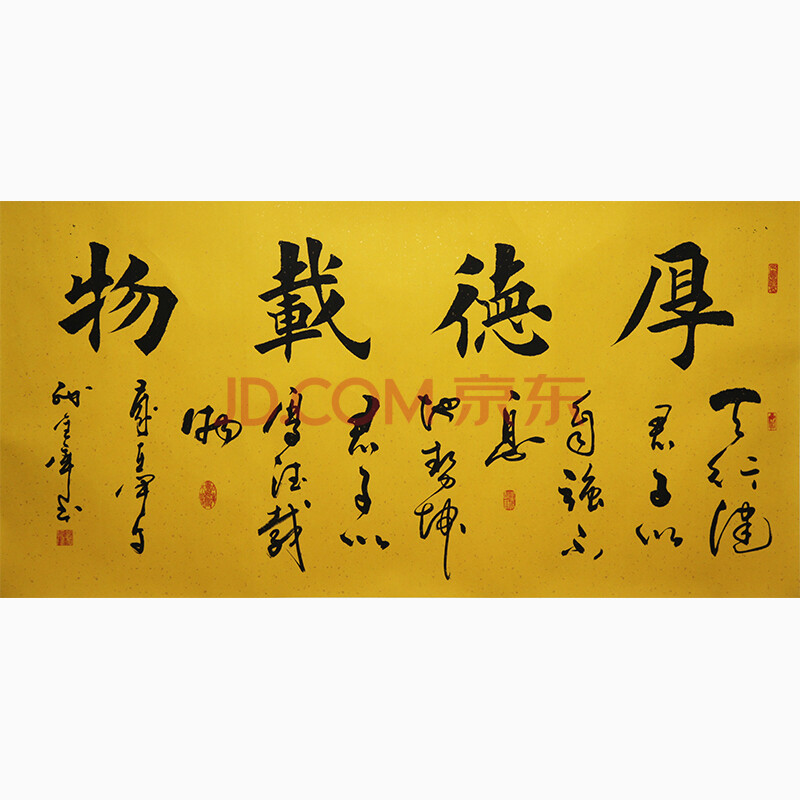 厚德載物
天行健
君子以
自强不
息
地勢坤
君子以
厚德載
物
JD.COM 京东